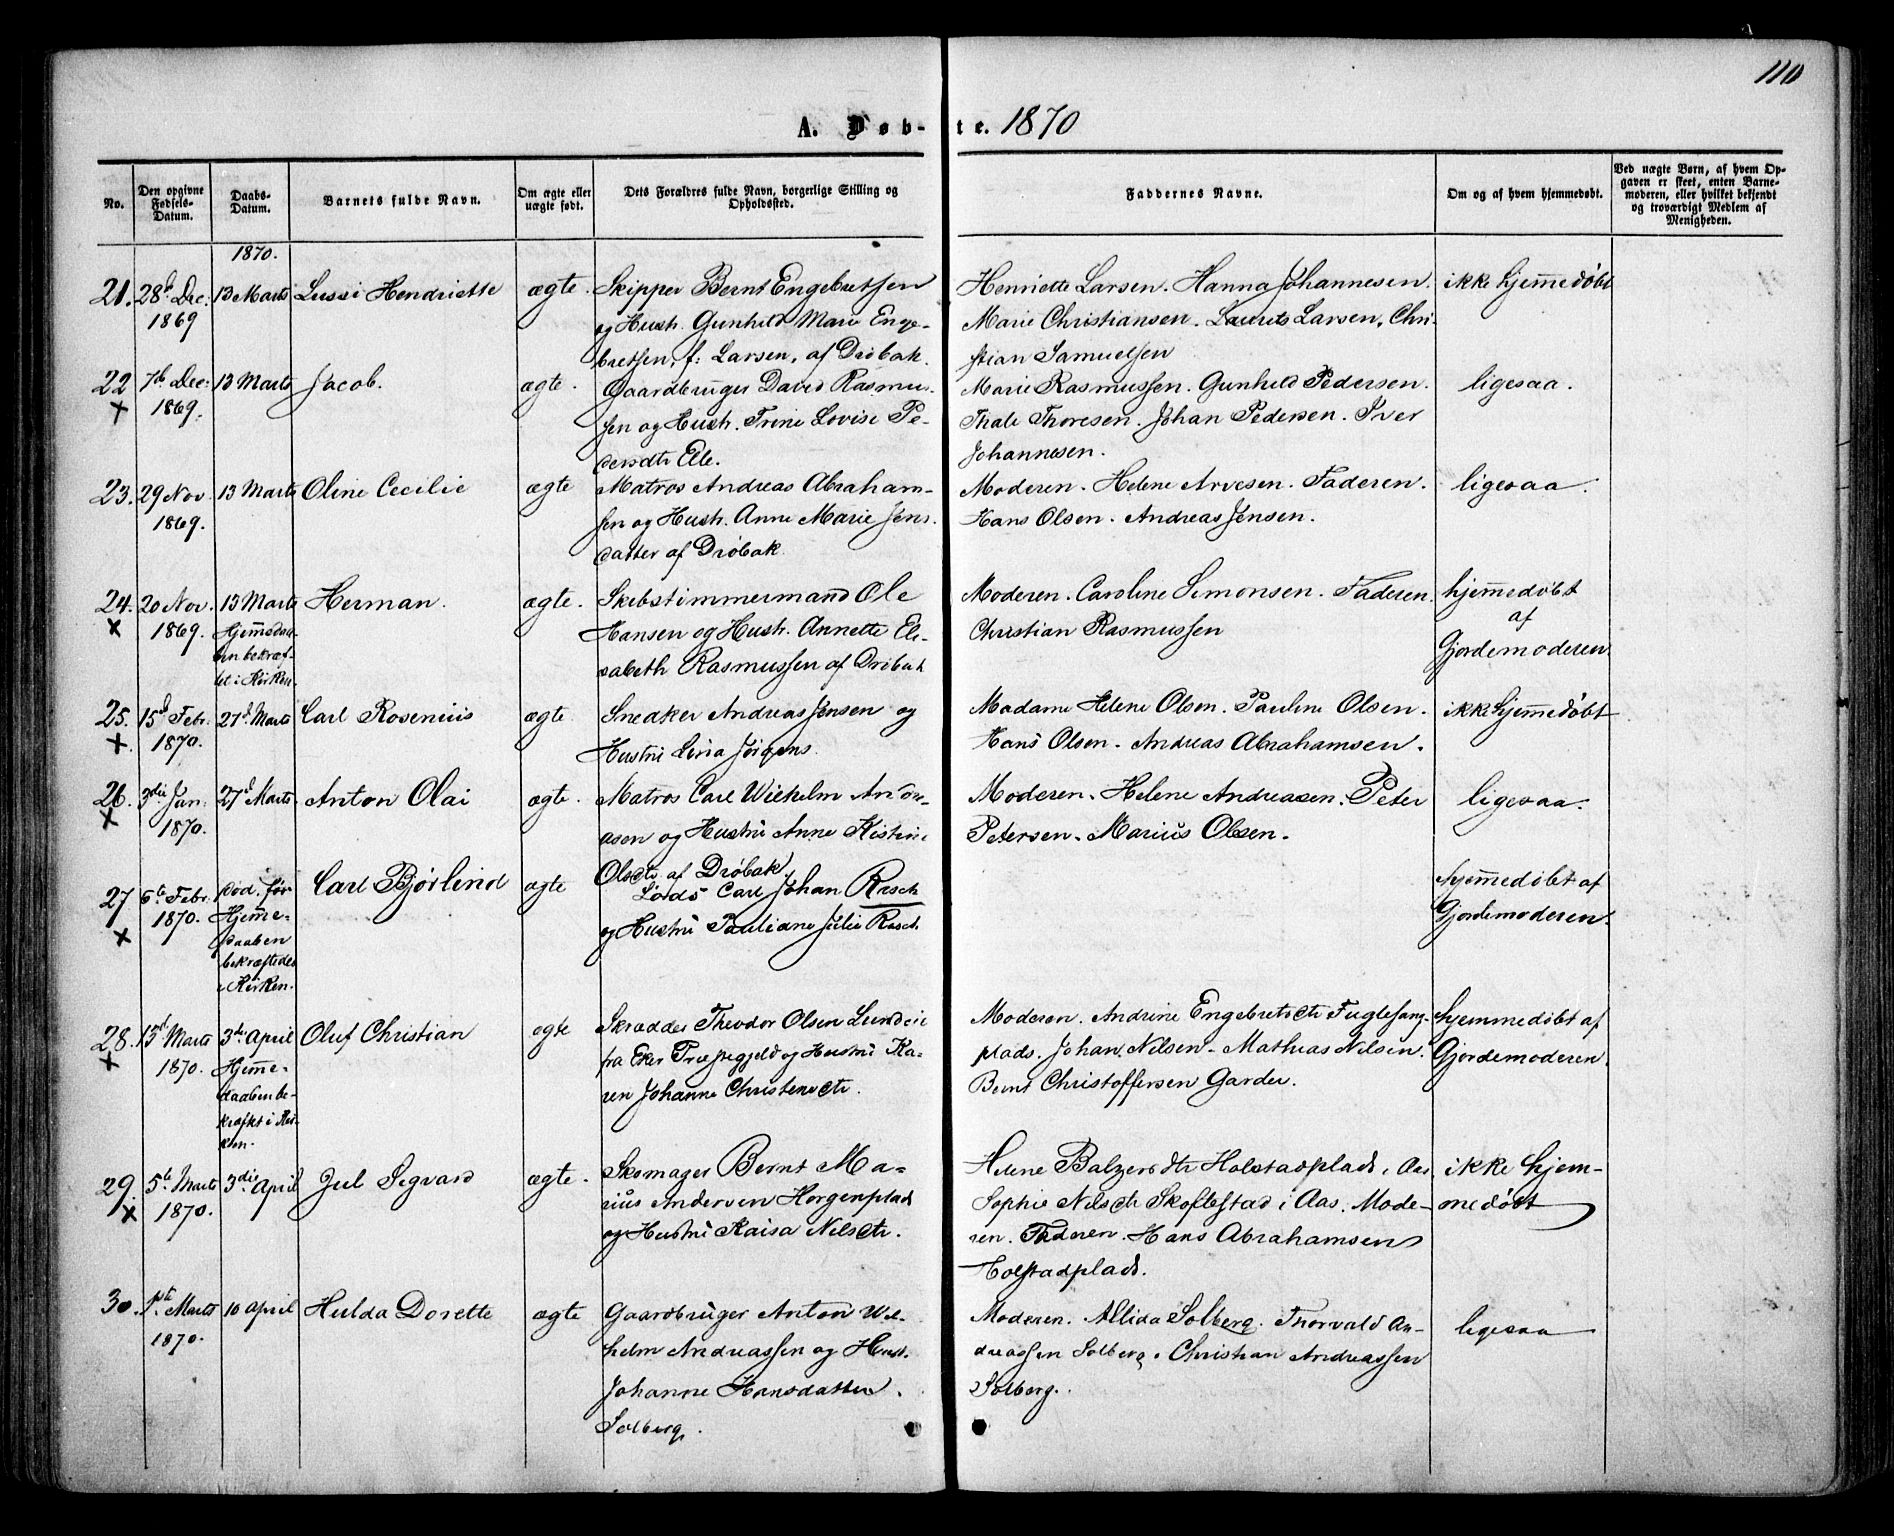 110
A. Døb-te. 1870
No.
Den opgivne Fødsels-Datum.
Daabs-Datum.
Barnets fulde Navn.
Om ægte eller uægte født.
Dets Forældres fulde Navn, borgerlige Stilling og Opholdssted.
Faddernes Navne.
Om og af hvem hjemmedøbt.
Ved uægte Børn, af hvem Opgaven er skeet, enten Barnemoderen, eller hvilket bekjendt og troværdigt Medlem af Menigheden.
1870.
21. 28de Dec: 13 Marts Lussi Hendriette ægte. Skipper Bernt Engebretsen Henriette Larsen. Hanna Johannesen. ikke hjem̅edøbt
1869 og Hustr. Gunhild Marie Enge- Marie Christiansen. Laurits Larsen, Chri-
bretsen, f: Larsen, af Drøbak. stian Samuelsen
22 7de Dec: 13 Marts Jacob. ægte. Gaardbruger David Rasmus- Marie Rasmussen. Gunhild Pedersen. ligesaa.
x 1869. sen og Hustr. Trine Lovise Pe- Thale Thoresen. Johan Pedersen. Iver
dersdtr Elle. Johannesen.
23. 29 Nov. 13 Marts Oline Cecilie ægte Matros Andreas Abraham- Moderen. Helene Arvesen. Faderen. ligesaa.
1869. sen og Hustr. Anne Marie Jens- Hans Olsen. Andreas Jensen.
datter af Drøbak.
24. 20 Nov. 13 Marts Herman. ægte. Skibstimmermand Ole Moderen. Caroline Simonsen. Faderen. hjem̅edøbt
x 1869. Hjemmedaa- Hansen og Hustr. Annette Eli- Christian Rasmussen af
ben bekræf- sabeth Rasmussen af Drøbak Gjordemoderen
tet i Kirken.
25. 15de Febr. 27de Marts Carl Rosenius ægte Snedker Andreas Jensen og Madame Helene Olsen. Pauline Olsen. ikke hjem̅edøbt
x 1870. Hustru Lina Jørgens. Hans Olsen. Andreas Abrahamsen.
26. 3die Jan: 27de Marts Anton Olai ægte. Matros Carl Wilhelm Andre- Moderen. Helene Andreasen. Peter ligesaa.
x 1870. asen og Hustru Anne Kistine Petersen. Marius Olsen.
Olsdtr af Drøbak
27 6te Febr. død før Carl Bjørlind ægte Lods Carl Johan Rasch hjem̅edøbt af
x 1870. Hjem̅e- og Hustru Pauliane Julie Rasch Gjordemoderen.
daaben
bekræftedes
i Kirken.
28. 13de Marts 3die April Oluf Christian ægte Skrædder Theodor Olsen Moderen. Andrine Engebretsdtr Fuglesang- hjemmedøbt af
x 1870. Hjem̅e- fra Eker Præstegjeld og Hustru Ka- plads. Johan Nilsen. Mathias Nilsen. Gjordemoderen.
daaben be- ren Johanne Christensdtr. Bernt Christoffersen Garder.
kræftet i Kir-
ken.
29. 5te Marts 3die April Jul Segvard ægte. Skomager Bernt Ma- Helene Balzersdtr Holstadplads, Aas. ikke hjem-
x 1870. rius Andersen Horgenplads Sophie Nilsdtr Skoflestad i Aas. Mode- medøbt
og Hustru Kaisa Nilsdtr. ren. Faderen. Hans Abrahamsen
Holstadplads.
30. 1ste Marts 10 April Hulda Dorette ægte Gaardbruger Anton Wil- Moderen. Allida Solberg. Thorvald An- ligesaa
1870. helm Andreassen og Hust. dreassen Solberg. Christian Andreassen
Johanne Hansdatter. Solberg.
Solberg.